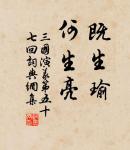 既生瑜
何生亮
三國演義第五十
七回詞典網集